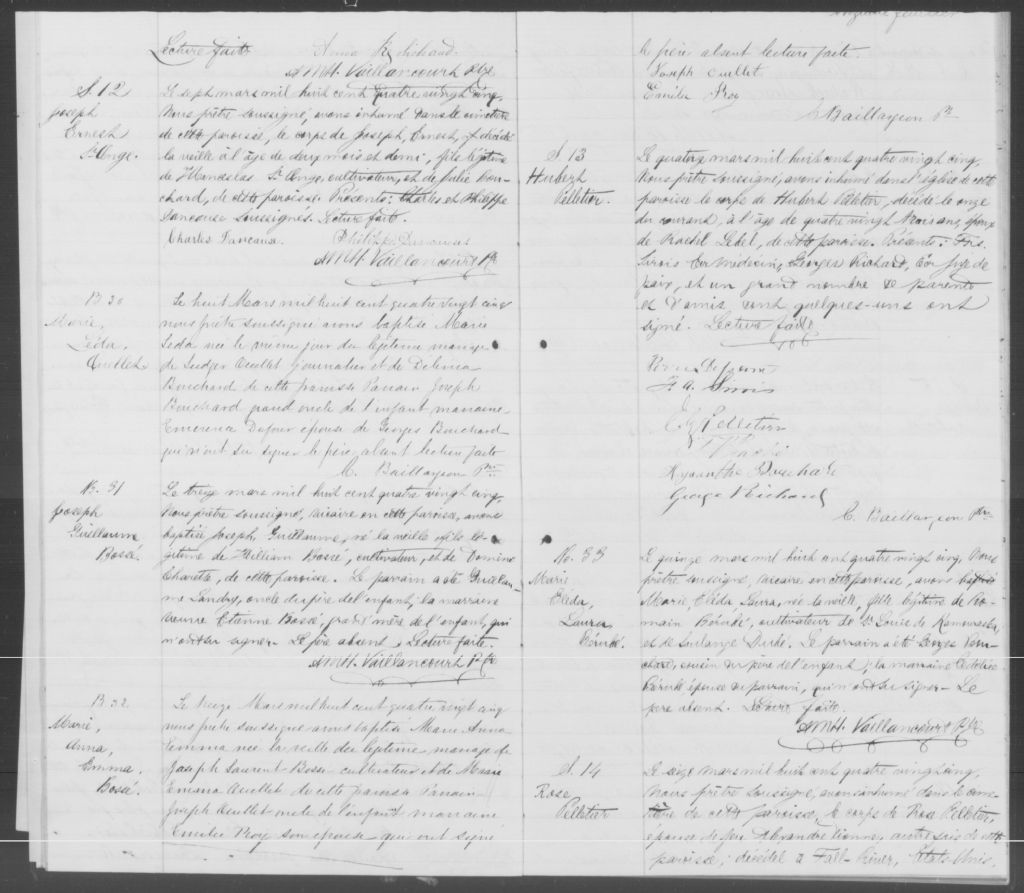 Lecture faite Anna Richard
A M H. Vaillancourt Ptre
S. 12
Joseph
Ernest
St Onge.
Le sept mars mil huit cent quatre vingt cinq,
Nous prêtre soussigné, avons inhumé dans le cimetière
de cette paroisse, le corps de Joseph, Ernest, décédé
la veille à l'âge de deux mois et demi, fils légitime
de St Onge, cultivateur, et de Julie Bou-
chard, de cette paroisse. Présents: Charles et Philippe
soussignés. Lecture faite.
Charles Philippe
A M H. Vaillancourt Ptre
B 30
Marie,
Léda,
Ouellet
Le huit Mars mil huit cent quatre vingt cinq
nous prêtre soussigné avons baptisé Marie
Leda née le premier jour du légitime mariage
de Ludger Ouellet journalier et de Delima
Bouchard de cette paroisse Parrain Joseph
Bouchard grand oncle de l'enfant marraine
Emerence Dufour épouse de Georges Bouchard
qui n'ont su signer le père absent lecture faite
C. Baillargeon Ptre
No. 31
Joseph
Guillaume
Bossé.
Le treize mars mil huit cent quatre vingt cinq,
Nous prêtre soussigné, vicaire en cette paroisse, avons
baptisé Joseph, Guillaume, né la veille fils lé-
gitime de William Bossé, cultivateur, et de Domine
Charette, de cette paroisse. Le parrain a été Guillau-
me Landry, oncle du père de l'enfant; la marraine
veuve Etienne Bossé, grand'mère de l'enfant, qui
n'ont su signer. Le père absent. Lecture faite.
A M H. Vaillancourt Ptre
B 32
Marie,
Anna,
Emma.
Bossé
Le treize Mars mil huit cent quatre vingt cinq
nous prêtre soussigné avons baptisé Marie Anna
Emma née la veille du légitime mariage de
Joseph Laurent Bossé cultivateur et de Marie
Emma Ouellet de cette paroisse Parrain
Joseph Ouellet oncle de l'enfant marraine
Emilie Roy son épouse qui ont signé
le père absent lecture faite.
Joseph Ouellet
Emilie Roy
C. Baillargeon Ptre
S. 13
Hubert
Pelletier.
Le quatorze mars mil huit cent quatre vingt cinq,
Nous prêtre soussigné, avons inhumé dans l'église de cette
paroisse le corps de Hubert Pelletier, décédé le onze
du courant, à l'âge de quatre vingt trois ans, époux
de Rachel Lebel, de cette paroisse. Présents: Frs.
Sirois Ecr Médecin, Georges Richard, Ecr Juge de
paix, et un grand nombre de parents
et d'amis dont quelques-uns ont
signé. Lecture faite
F. A. Sirois
Pelletier
Hyacinthe Bouchard
George Richard
C. Baillargeon Ptre
No. 33
Marie
Eléda,
Laura
Bérubé.
Le quinze mars mil huit cent quatre vingt cinq, Nous
prêtre soussigné, vicaire en cette paroisse, avons baptisé
Marie, Eléda, Laura, née la veille, fille légitime de Ro-
main Bérubé, cultivateur de St Louis de Kamouraska,
et de Solange Dubé. Le parrain a été Georges Bou-
chard, cousin du père de l'enfant; la marraine
Bérubé épouse du parrain, qui n'ont su signer. Le
père absent. Lecture faite.
A M H. Vaillancourt Ptre
S. 14
Rose
Pelletier
Le seize mars mil huit cent quatre vingt cinq,
Nous prêtre soussigné, avons inhumé dans le cime-
tière de cette paroisse, le corps de Rose Pelletier,
épouse de feu Alexandre autrefois de cette
paroisse, décédée à Fall-River, Etats-Unis,